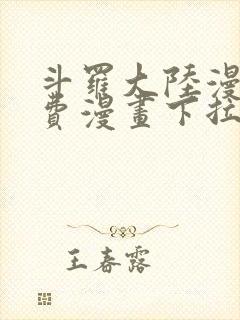 斗羅大陸漫
費漫畫下拉
王春露